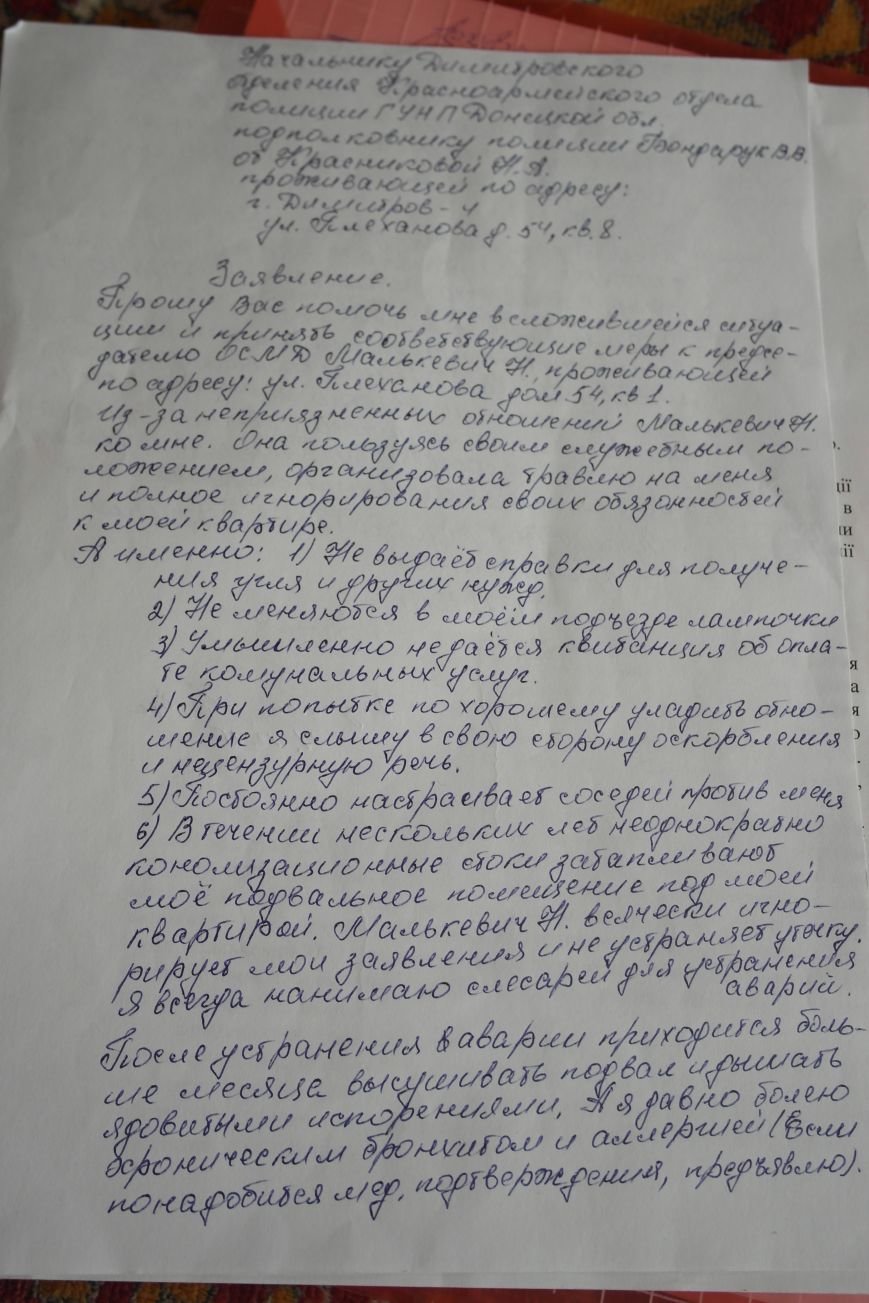 Начальнику Димитровского
отделения Красноармейского отдела
полиции ГУНП Донецкой обл.
подполковнику полиции Бондарук В.В.
от Красниковой Н.А.
проживающей по адресу:
г. Димитров-4
ул. Плеханова д. 54, кв. 8.
Заявление.
Прошу Вас помочь мне в сложившейся ситуа-
ции и принять соответствующие меры к предсе-
дателю ОСМД Малькевич Н., проживающей
по адресу: ул. Плеханова дом 54, кв 1.
Из-за неприязненных отношений Малькевич Н.
ко мне. Она пользуясь своим служебным по-
ложением, организовала травлю на меня
и полное игнорирования своих обязонностей
к моей квартире.
А именно: 1) Не выдаёт справки для получе-
ния угля и других нужд.
2) Не меняются в моём подъезде лампочки
3) Умышленно не даётся квитанция об опла-
те комунальных услуг.
4) При попытке по хорошему уладить отно-
шение я слышу в свою сторону оскорбления
и нецензурную речь.
5) Постоянно настраивает соседей против меня
6) В течении нескольких лет неоднократно
кономизационные стоки затапливают
моё подвальное помещение под моей
квартирой. Малькевич Н. всячески игно-
рирует мои заявления и не устраняет утечку.
Я всегда нанимаю слесарей для устранения
аварий.
После устранения аварии приходится боль-
ше месяца высушивать подвал и дышать
ядовитыми испорениями, А я давно болею
хроническим бронхитом и аллергией (Если
понадобится мед. подтверждения, предъявлю).
ції
в
ни
ії
я
а
я
о